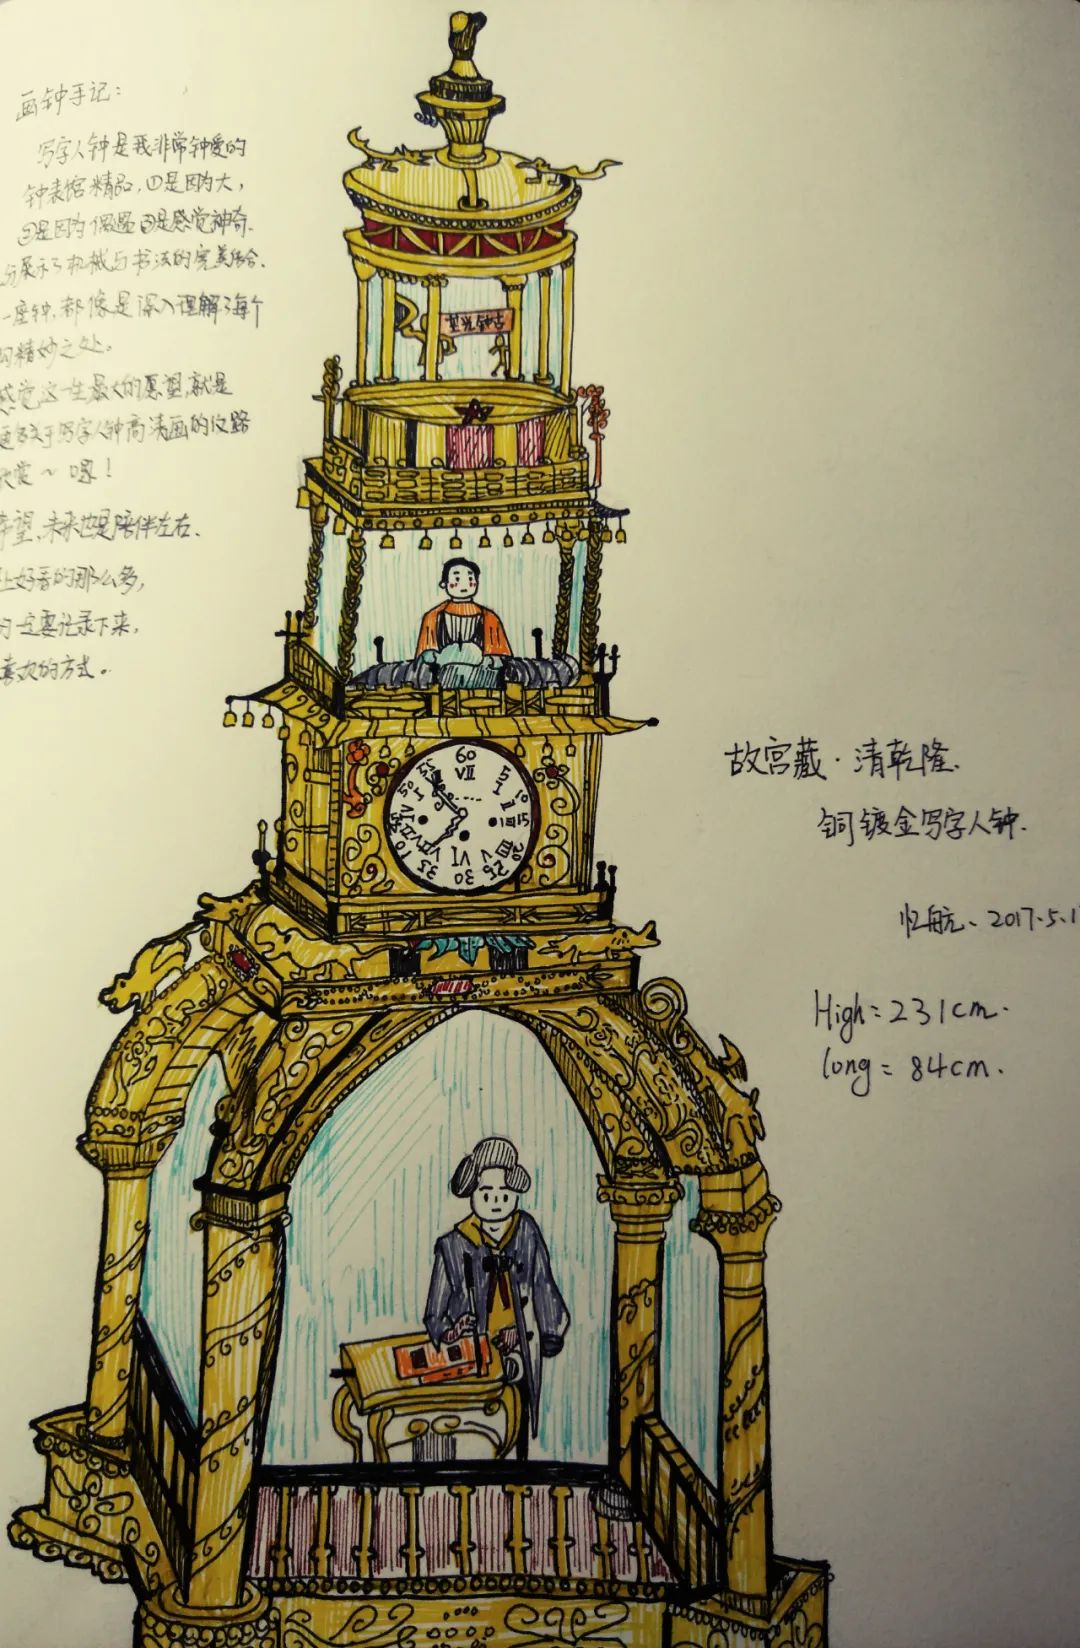 画钟手记：
写字人钟是我非常钟爱的
钟表馆精品，①是因为大，
②是因为偶遇③是感觉神奇.
分展示了机械与书法的完美结合.
一座钟，都像是深入理解了每个
的精妙之处。
感觉这一生最大的愿望，就是
关于写字人钟高清画的
欣赏～嘿！
希望，未来也是陪伴左右.
上好看的那么多，
一定要记录下来，
喜欢的方式。
60
VII
5
I
10
II
15
III
20
25
V
30
VI
35
VII
50
55
故宫藏·清乾隆.
铜镀金写字人钟.
忆航、2017.5.1
High=231cm.
long=84cm.